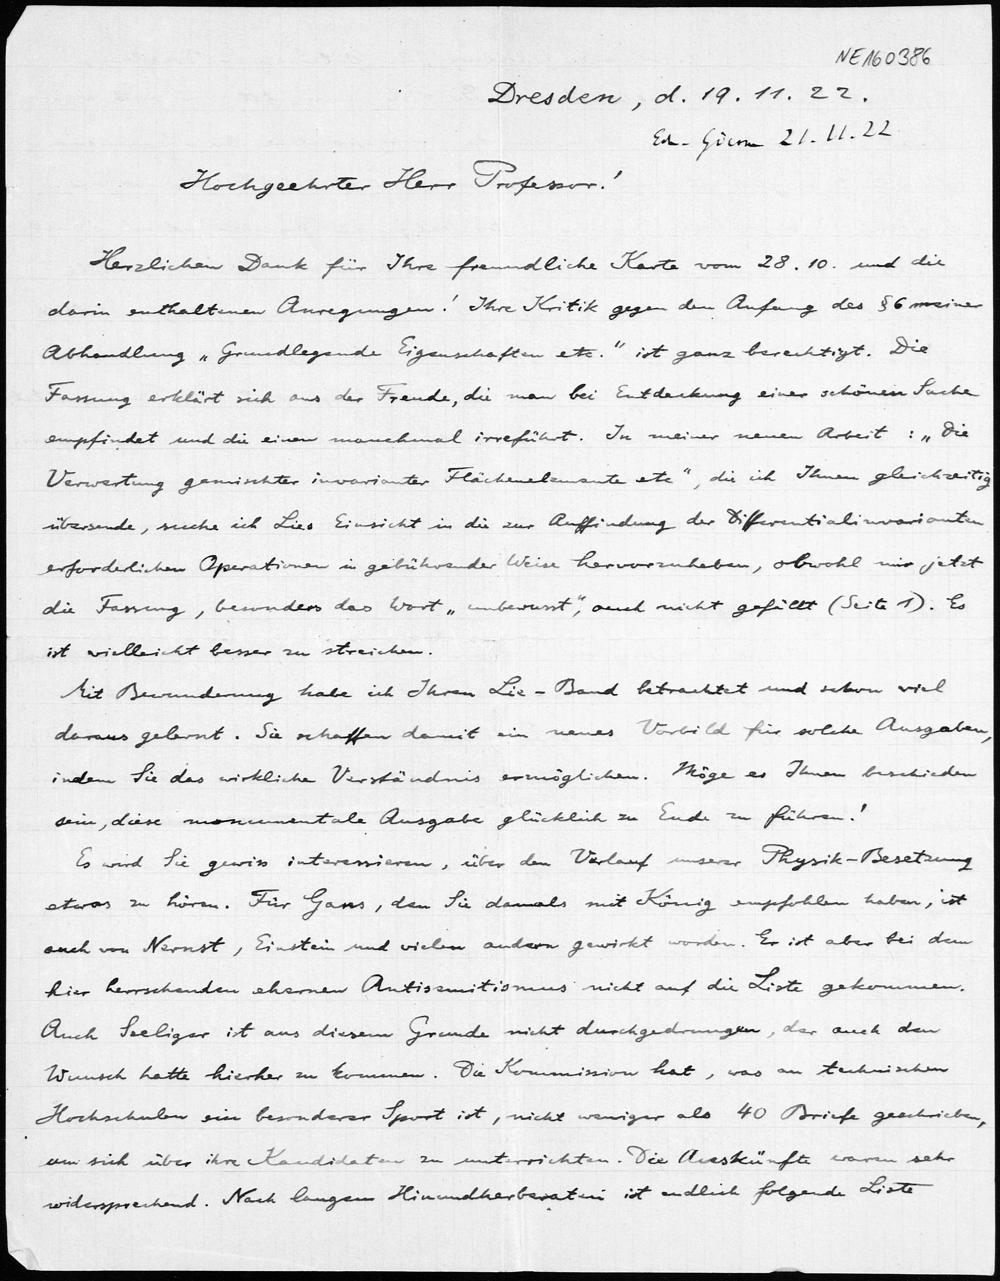 NE160386
Dresden, d. 19.11.22.
21.11.22
Hochgeehrter Herr Professor!
Herzlichen Dank für Ihre freundliche Karte vom 28.10. und die
darin enthaltenen Anregungen! Ihre Kritik gegen den Anfang des §6 meiner
Abhandlung „Grundlegende Eigenschaften etc." ist ganz berechtigt. Die
Fassung erklärt sich aus der Freude, die man bei Entdeckung einer schönen Sache
empfindet und die einen manchmal irreführt. In meiner neuen Arbeit: „Die
Verwertung gemischter invarianter Flächenelemente etc", die ich Ihnen gleichzeitig
übersende, suche ich Lies Einsicht in die zur Auffindung der Differentialinvarianten
erforderlichen Operationen in gebührender Weise hervorzuheben, obwohl mir jetzt
die Fassung, besonders das Wort „unbewusst", auch nicht gefällt (Seite 1). Es
ist vielleicht besser zu streichen.
Mit Bewunderung habe ich Ihren Lie-Band betrachtet und schon viel
daraus gelernt. Sie schaffen damit ein neues Vorbild für solche Ausgaben,
indem Sie das wirkliche Verständnis ermöglichen. Möge es Ihnen beschieden
sein, diese monumentale Ausgabe glücklich zu Ende zu führen!
Es wird Sie gewiss interessieren, über den Verlauf unserer Physik-Besetzung
etwas zu hören. Für Gans, den Sie damals mit König empfohlen haben, ist
auch von Nernst, Einstein und vielen andern gewirkt worden. Er ist aber bei dem
hier herrschenden ehernen Antisemitismus nicht auf die Liste gekommen.
Auch Seeliger ist aus diesem Grunde nicht durchgedrungen, der auch den
Wunsch hatte hierher zu kommen. Die Kommission hat, was an technischen
Hochschulen ein besonderer Sport ist, nicht weniger als 40 Briefe geschrieben,
um sich über ihre Kandidaten zu unterrichten. Die Auskünfte waren sehr
widersprechend. Nach langem Hinundherberaten ist endlich folgende Liste